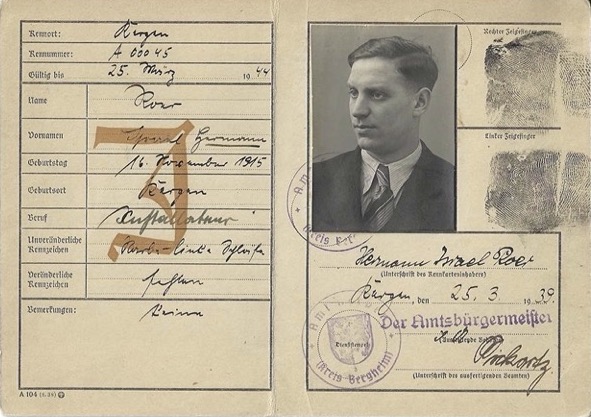 Kennort: Kerpen
Kennummer: A 00045
Gültig bis 25. März 1944
Name Roer
Vornamen Israel Hermann
Geburtstag 16. November 1915
Geburtsort Kerpen
Beruf Installateur
Unveränderliche Kennzeichen
Veränderliche Kennzeichen fehlen
Bemerkungen: Keine
J
A 104
Rechter Zeigefinger
Linker Zeigefinger
Hermann Israel Roer
(Unterschrift des Kennkarteninhabers)
Kerpen, den 25. 3. 1939.
Der Amtsbürgermeister
(Unterschrift des ausfertigenden Beamten)
Dienstsiegel
(Kreis Bergheim)